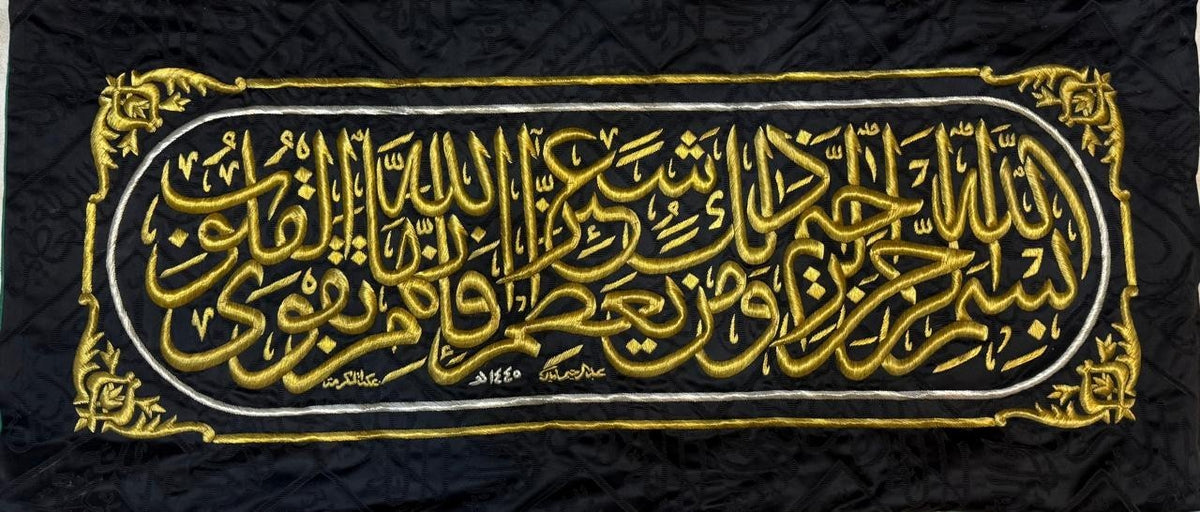 بسم الله الرحمن الرحيم ذلك ومن يعظم شعائر الله فإنها من تقوى القلوب
١٤٤٥هـ مكة المكرمة